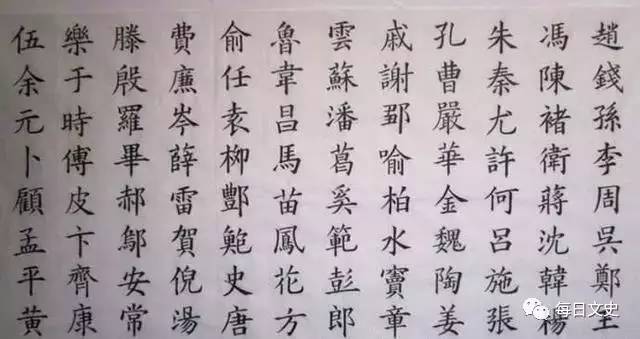 趙錢孫李周吳鄭王
馮陳褚衛蔣沈韓楊
朱秦尤許何呂施張
孔曹嚴華金魏陶姜
戚謝鄒喻柏水竇章
雲蘇潘葛奚範彭郎
魯韋昌馬苗鳳花方
俞任袁柳酆鮑史唐
費廉岑薛雷賀倪湯
滕殷羅畢郝鄔安常
樂于時傅皮卞齊康
伍余元卜顧孟平黃
每日文史